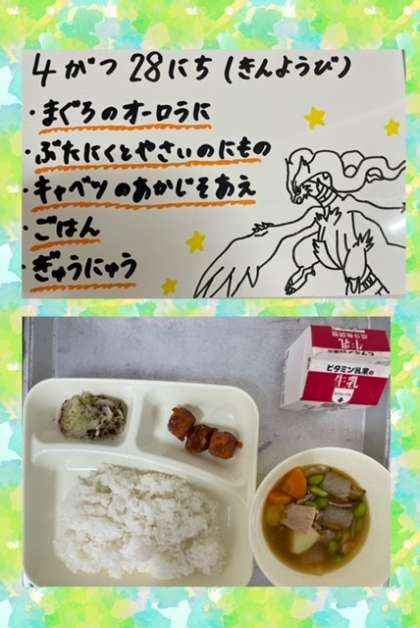 4がつ28にち(きんようび)
・まぐろのオーロラに
・ぶたにくとやさいのにもの
・キャベツのあかじそあえ
・ごはん
・ぎゅうにゅう
牛乳
ビタミン乳業の